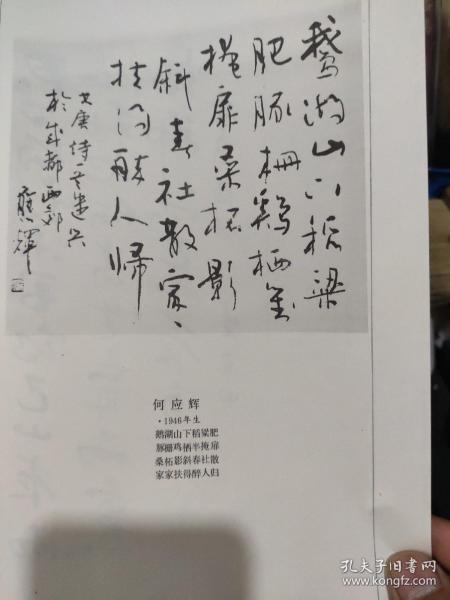 鵝湖山下稻粱
肥豚栅鷄栖
掩扉桑柘影
斜春社散家、
扶得醉人歸
於成都西郊
應輝
何应辉
·1946年生
鹅湖山下稻粱肥
豚栅鸡栖半掩扉
桑柘影斜春社散
家家扶得醉人归
孔夫子旧书网
www.kongfz.com